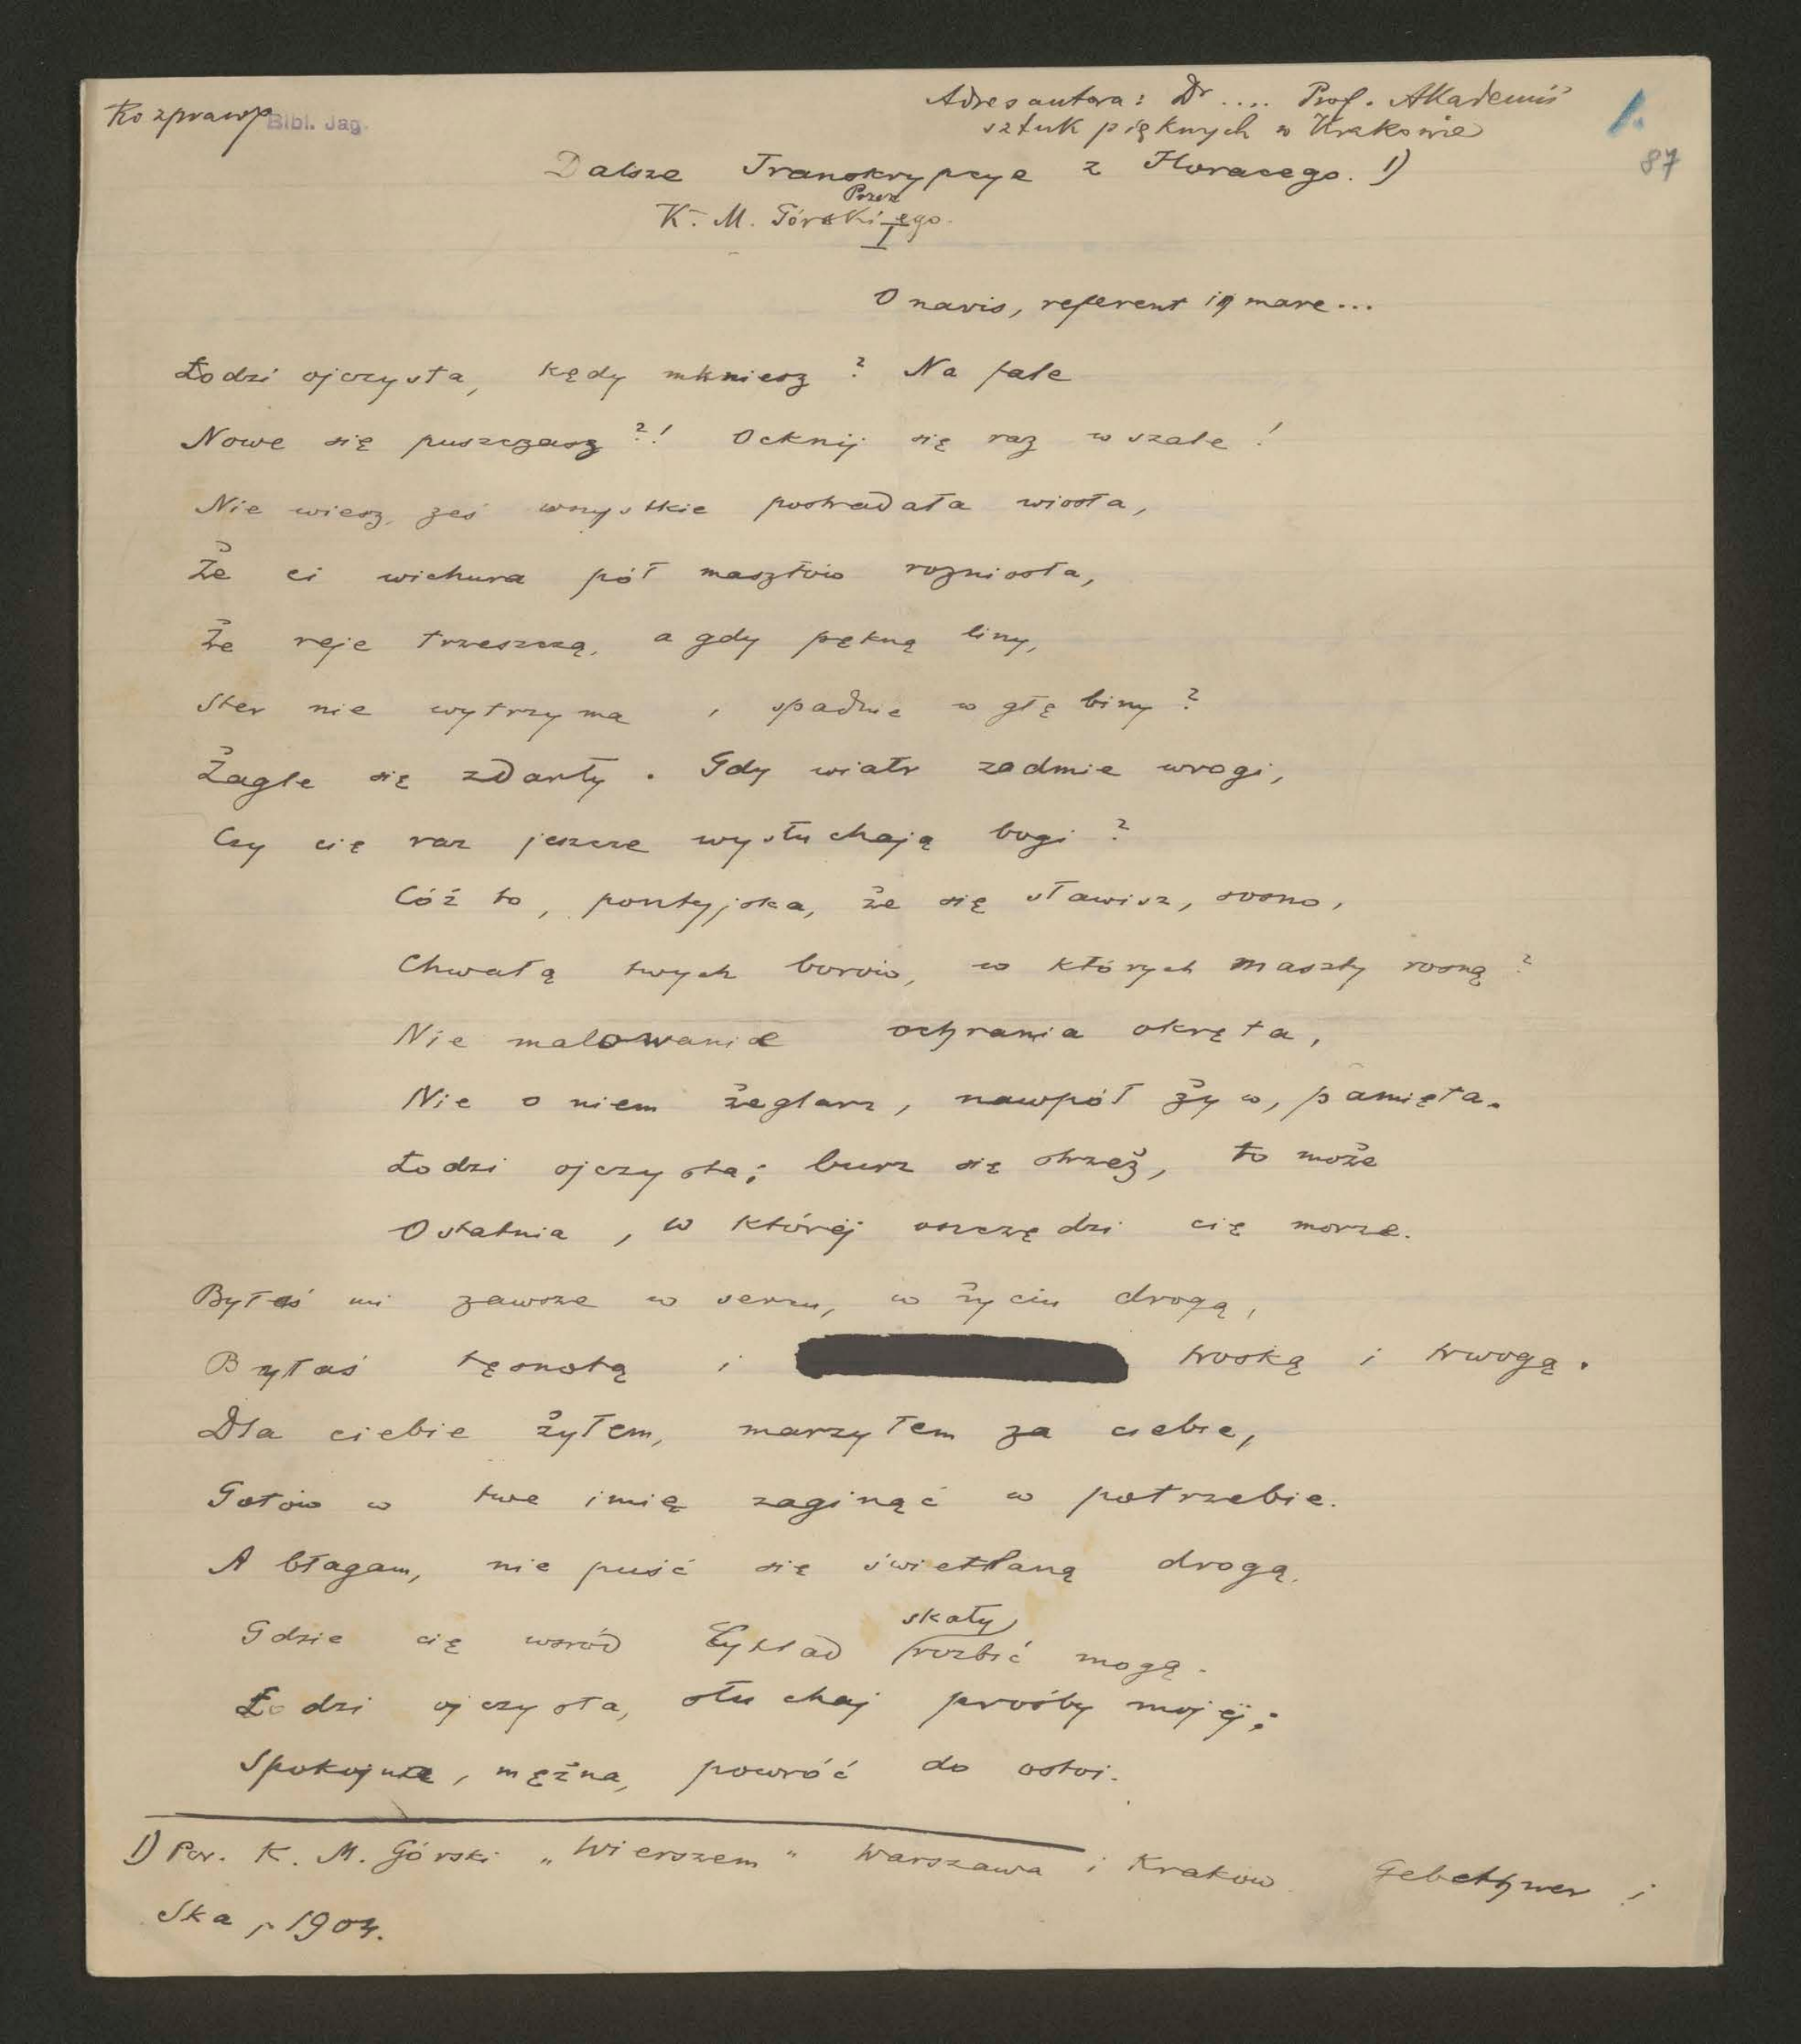 Rozprawy
Bibl. Jag.
Adres autora: Dr .... Prof. Akademii
sztuk pięknych w Krakowie
1.
87
Dalsze Transkrypcye z Horacego. 1)
Przez
K. M. Górskiego.
I
O navis, referent in mare...
Łodzi ojczysta, kędy mkniesz? Na fale
Nowe się puszczasz?! Ocknij się raz w szale!
Nie wiesz, żeś wszystkie postradała wiosła,
Że ci wichura pół masztów rozniosła,
Że reje trzeszczą, a gdy pękną liny,
Ster nie wytrzyma i spadnie w głębiny?
Żagle się zdarły. Gdy wiatr zadmie wrogi,
Czy cię raz jeszcze wysłuchają bogi?
Cóż to, pontyjska, że się sławisz, sosno,
Chwałą twych borów, w których maszty rosną?
Nie malowanie ochrania okręta,
Nie o niem żeglarz, nawpół żyw, pamięta.
Łodzi ojczysta; burz się strzeż, to może
Ostatnia, w której oszczędzi cię morze.
Byłaś mi zawsze w sercu, w życiu drogą,
Byłaś tęsnotą i troską i trwogą.
Dla ciebie żyłem, marzyłem za ciebie,
Gotów w twe imię zaginąć w potrzebie.
A błagam, nie puść się świetlaną drogą,
Gdzie cię wsród Cykład skały rozbić mogą.
Łodzi ojczysta, słuchaj prośby mojéj;
Spokojna, mężna, powróć do ostoi.
1) Por. K. M. Górski „Wierszem" Warszawa i Kraków Gebethner i
Ska r 1904.